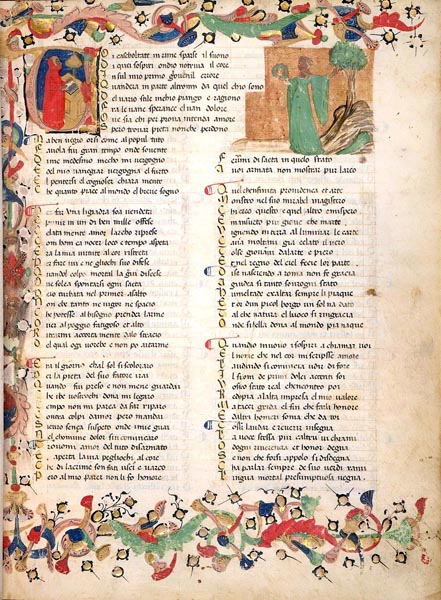 Voi cascholtate in rime sparse il suono
Di quei sospiri ondio nutriva il core
In sul mio primo giovenil errore
Quandera in parte altrom da quel chio sono
Del vario stile inchio piango e ragiono
Fra le vane speranze el van dolore
Ove sia chi per prova intenda amore
Spero trovar pieta nonche perdono
Ma ben vegio or si come al popul tuto
Favola fui gran tempo onde sovente
Di me medesmo mecho mi vergogno
Et del mio vanegiar vergogna el fructo
El pentersi el cognoscer chiara mente
Che quanto piace al mondo e breve sogno
Per far una ligiadra soa vendetta
Et punir in un di ben mille offese
Celata mente amor larcho riprese
Come hom ca nocer loco e tempo aspeta
Era la mia virtute al cor ristreta
Per far ivi e ne gliochi sue difese
Quandol colpo mortal la giu discese
Ove solea spontarsi ogni saeta
Pero turbata nel primer assalto
Non hebe tanto ne vigor ne spacio
Che potesse al bisogno prender larme
O vero al poggio faticoso et alto
Ritrarmi acorta mente dalo stracio
Del qual ogi vorebe e non po aitarme
Era il giorno chal sol si scoloraro
Per la pieta del suo fatore i rai
Quando fui preso e non mene guardai
Che i be vostrochi dona mi legaro
Tempo non mi parea da far riparo
Contra colpi damor pero mandai
Securo senza suspeto onde i mie guai
Nel chomune dolor si comenciaro
Trovomi amor del tuto disarmato
Et aperta la via per gliochi al core
Che di lacrime son fati uscio e varco
Pero al mio parer non li fo honore
Ferirmi di saeta in quelo stato
A voi armata non mostrar pur larco
Quel chenfinita providenza et arte
Mostro nel suo mirabel magistero
Che creo questo e quel altro emispero
E mansueto piu giove che marte
Vegnendo in terra al luminar le carte
Cavia moltanni gia celato il vero
Tolse giovani dalarte e piero
E nel regno del ciel fece lor parte
Di se nascendo a roma non fe gracia
A giudea si tanto sovrogni stato
Humeltade exaltar sempre li piaque
Et or dun picol borgo un sol na dato
Tal che natura el luoco si ringracia
Onde si bella dona al mondo naque
Quando io movo i sospiri a chiamar voi
El nome che nel cor mi scripse amore
Laudando si comincia udir di fore
Il suon de primi dolci acenti soi
Vostro stato real chencontro poi
Radopia alalta impresa el mio valore
Ma tacer grida el fin che farli honore
E daltri homeri soma che da toi
Cossi laudar e reverir insegna
La voce stessa pur caltri vi chiami
O dogni reverenza et honor degna
Se non che forsi apollo si disdegna
Cha parlar sempre de suo verdi rami
Lingua mortal presumptuosa vegna